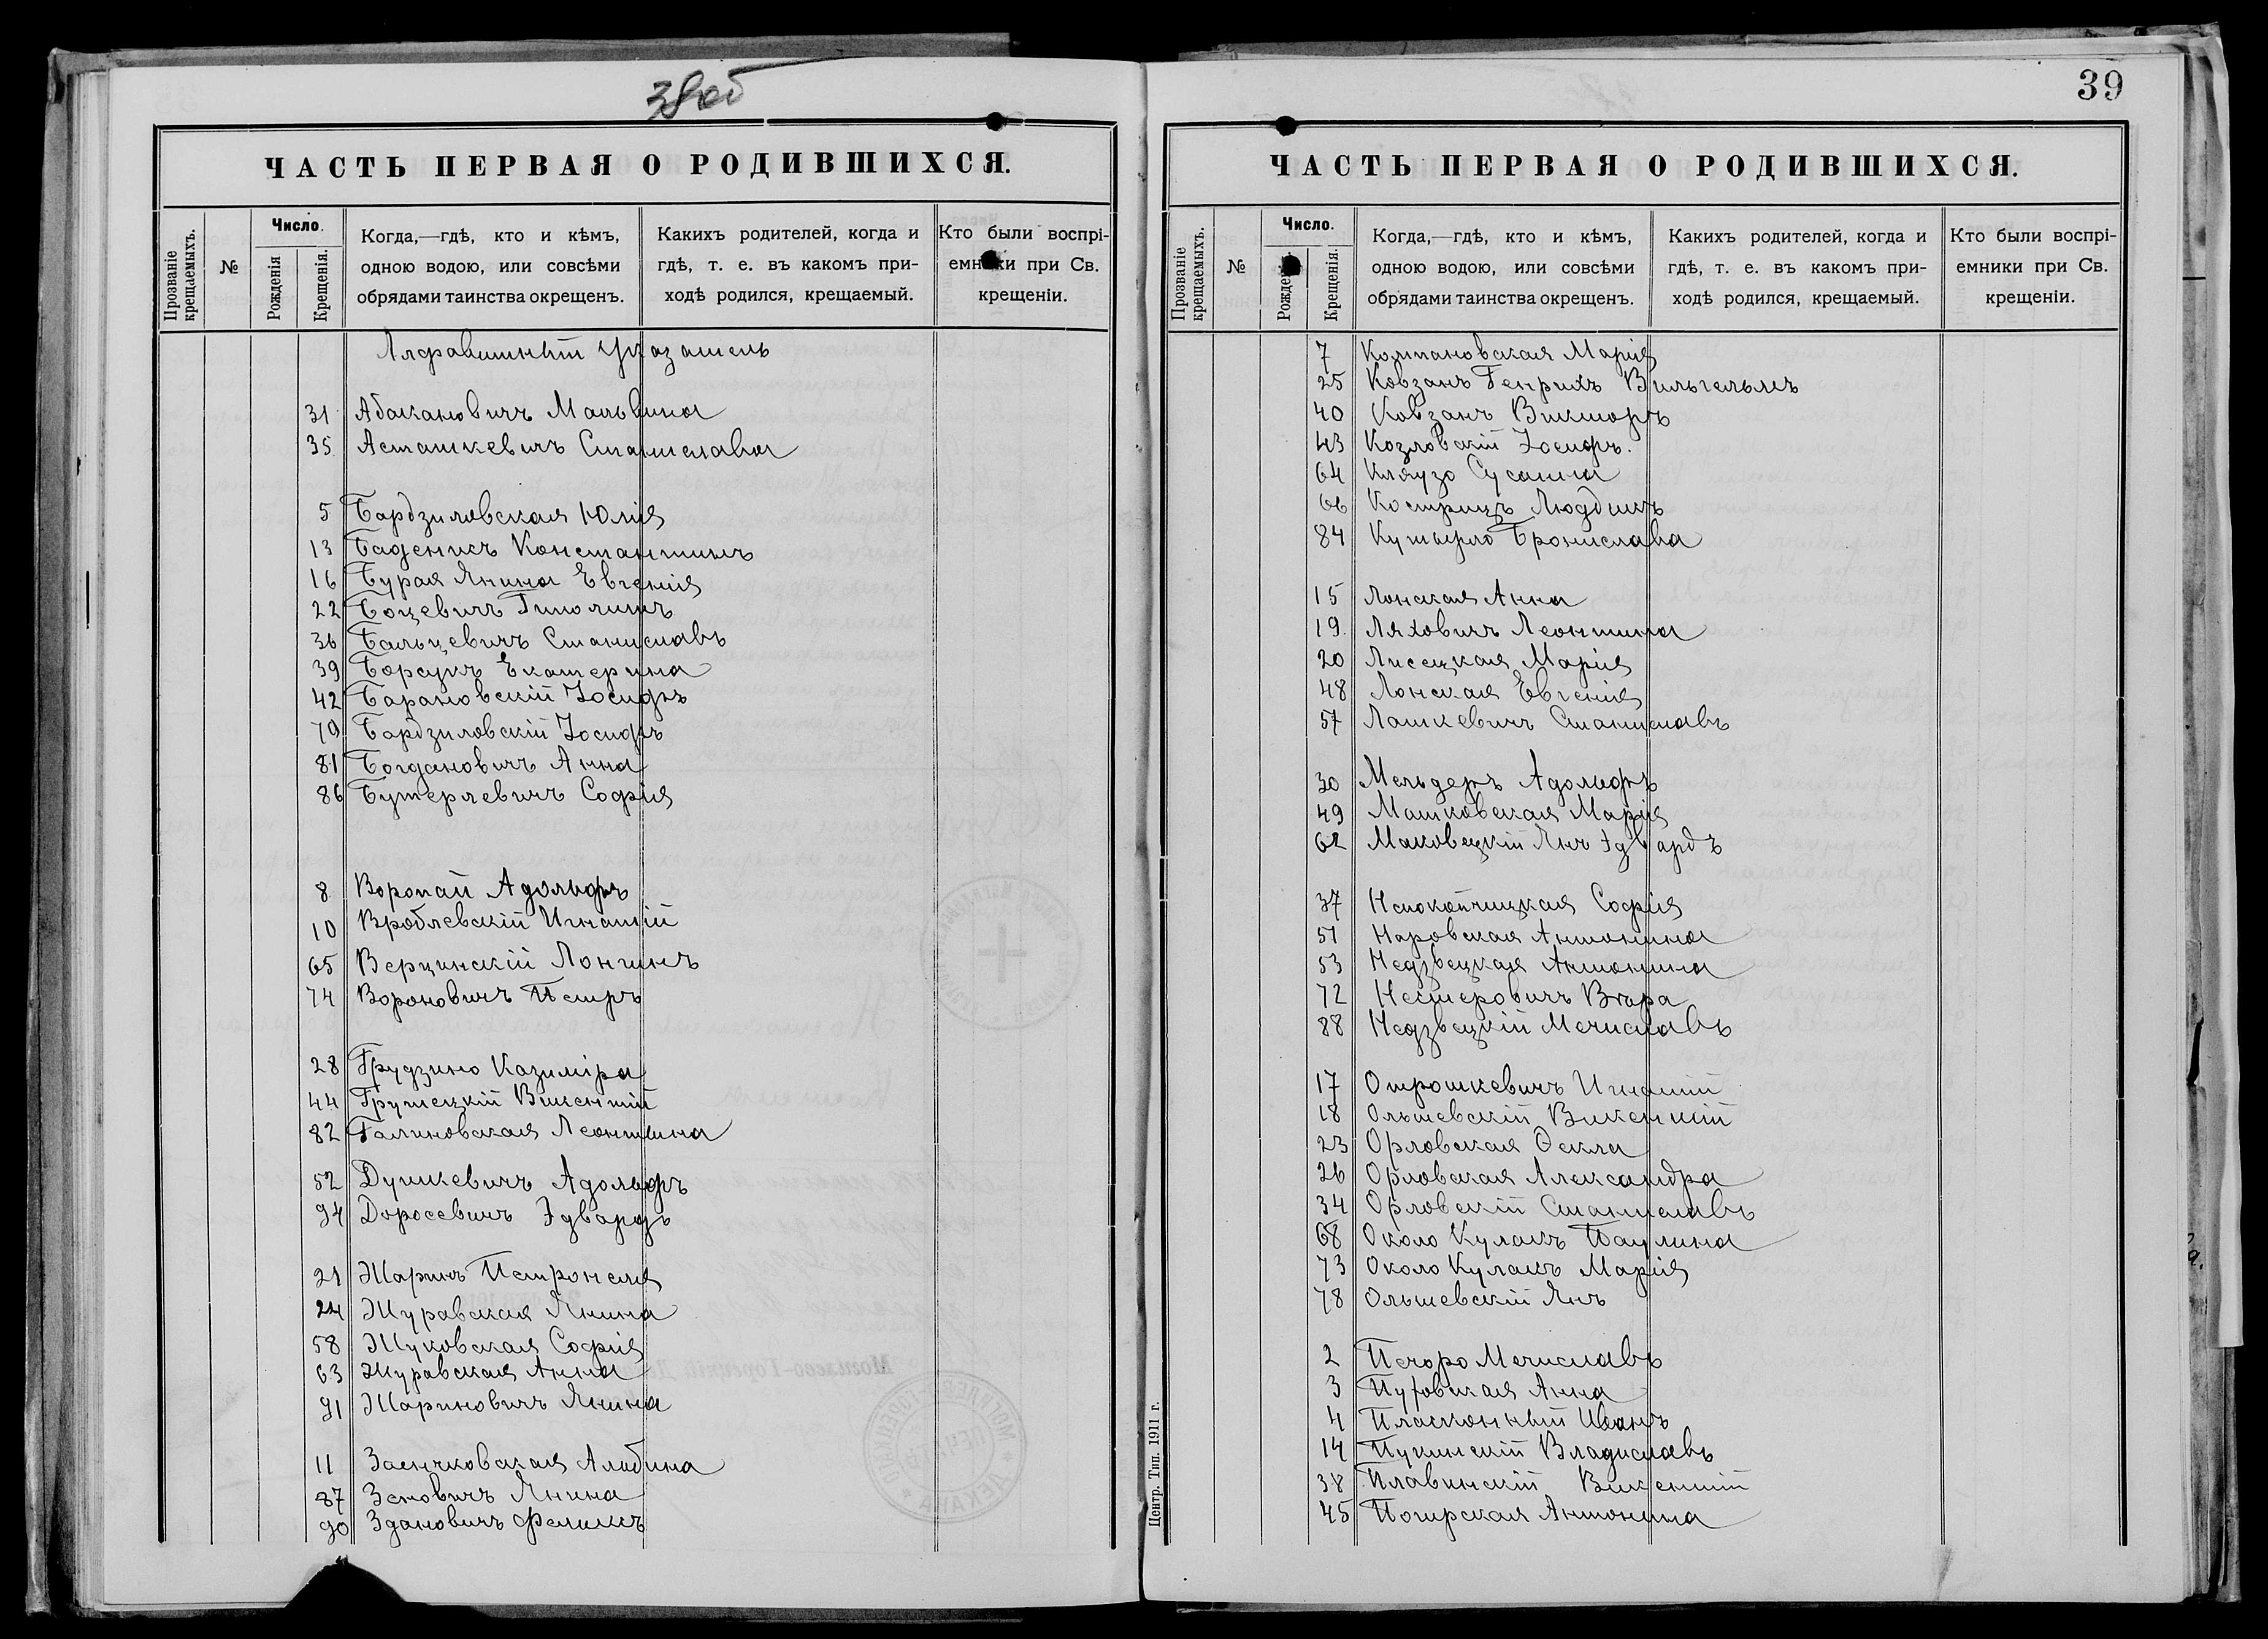 38об
ЧАСТЬ ПЕРВАЯ О РОДИВШИХСЯ.
Прозваніе крещаемыхъ.
№
Число.
Рожденія
Крещенія.
Когда,—гдѣ, кто и кѣмъ,
одною водою, или совсѣми
обрядами таинства окрещенъ.
Какихъ родителей, когда и
гдѣ, т. е. въ какомъ при-
ходѣ родился, крещаемый.
Кто были воспрі-
емники при Св.
крещеніи.
Алфавитный Указатель
31 Абакановичъ Мальвина
35 Асташкевичъ Станислава
5 Бардзиловская Юлія
13 Баденисъ Константинъ
16 Бурая Янина Евгенія
22 Боцевичъ Гиполитъ
36 Бальцевичъ Станиславъ
39 Борсукъ Екатерина
42 Барановскій Іосифъ
79 Бардзиловскій Іосифъ
81 Богдановичъ Анна
86 Бутерлевичъ Софія
8 Воропай Адольфъ
10 Вроблевскій Игнатій
65 Верцинскій Лонгинъ
74 Вороновичъ Петръ
28 Грудзино Казиміра
44 Грушецкій Викентій
82 Галиновская Леонтина
52 Душкевичъ Адольфъ
94 Доросевичъ Эдвардъ
21 Жаринъ Петронеля
24 Журавская Янина
58 Жуковская Софія
63 Журавская Анна
91 Жариновичъ Янина
11 Заенчковская Альбина
87 Зеновичъ Янина
90 Здановичъ Феликсъ
39
ЧАСТЬ ПЕРВАЯ О РОДИВШИХСЯ.
Прозваніе крещаемыхъ.
№
Число.
Рожденія
Крещенія.
Когда,—гдѣ, кто и кѣмъ,
одною водою, или совсѣми
обрядами таинства окрещенъ.
Какихъ родителей, когда и
гдѣ, т. е. въ какомъ при-
ходѣ родился, крещаемый.
Кто были воспрі-
емники при Св.
крещеніи.
7 Колпановская Марія
25 Ковзанъ Генрихъ Вильгельмъ
40 Ковзанъ Викторъ
43 Козловскій Іосифъ.
64 Кляузо Сусанна
66 Кострицъ Людвикъ
84 Кутырло Бронислава
15 Лонская Анна
19 Ляховичъ Леонтина
20 Лисецкая Марія
48 Лонская Евгенія
57 Лашкевичъ Станиславъ
30 Мельдеръ Адольфъ
49 Машковская Марія
62 Маковецкій Янъ Эдвардъ
37 Непокойчицкая Софія
51 Наровская Антонина
53 Недзвецкая Антонина
72 Нестеровичъ Вѣра
88 Недзвецкій Мечиславъ
17 Отрошкевичъ Игнатій
18 Ольшевскій Викентій
23 Орловская Ѳекла
26 Орловская Александра
34 Орловскій Станиславъ
68 Около Кулакъ Паулина
73 Около Кулакъ Марія
78 Ольшевскій Янъ
2 Печоро Мечиславъ
3 Анна
4 Иванъ
14 Пукинскій Владиславъ
38 Плавинскій Викентій
45 Антонина
Центр. Тип. 1911 г.